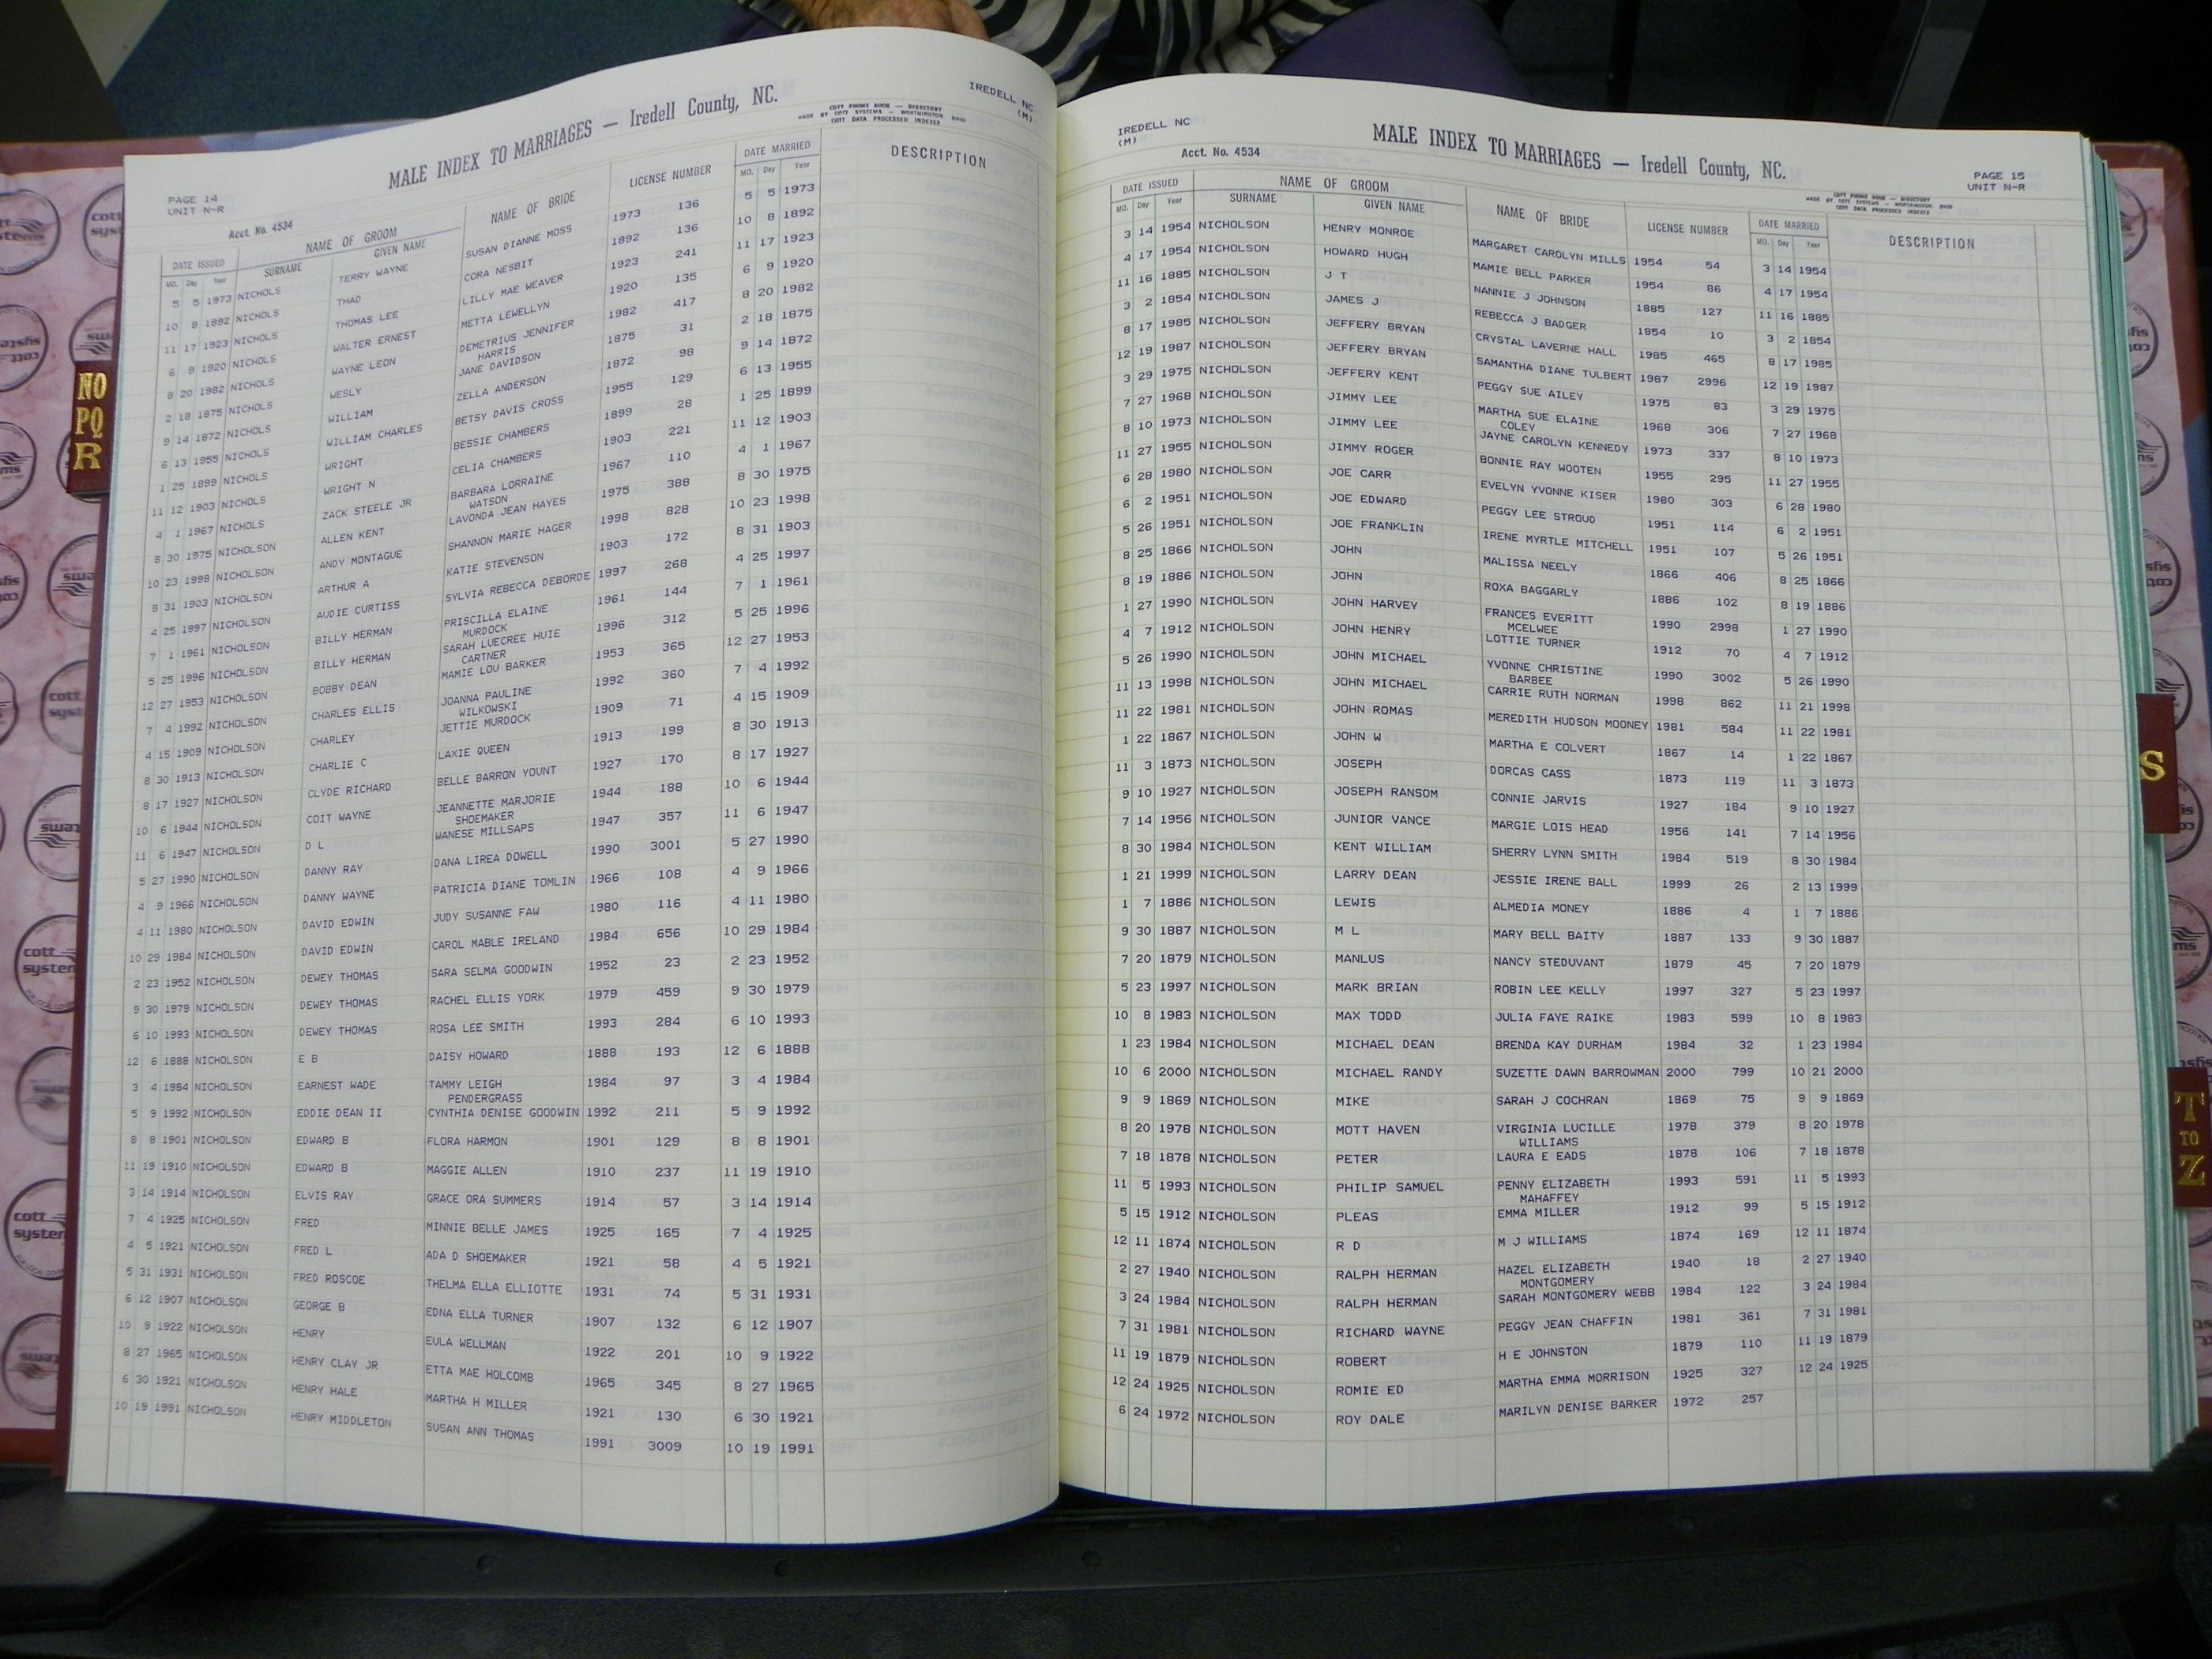 IREDELL NC
(M)
MALE INDEX TO MARRIAGES — Iredell County, NC.
COTT PHONE BOOK — DIRECTORY
MADE BY COTT SYSTEMS — WORTHINGTON OHIO
COTT DATA PROCESSED INDEXER
PAGE 14
UNIT N-R
Acct. No. 4534
DATE ISSUED NAME OF GROOM NAME OF BRIDE LICENSE NUMBER DATE MARRIED DESCRIPTION
MO. Day Year SURNAME GIVEN NAME MO. Day Year
5 5 1973 NICHOLS TERRY WAYNE SUSAN DIANNE MOSS 1973 136 5 5 1973
10 8 1892 NICHOLS THAD CORA NESBIT 1892 136 10 8 1892
11 17 1923 NICHOLS THOMAS LEE LILLY MAE WEAVER 1923 241 11 17 1923
6 9 1920 NICHOLS WALTER ERNEST METTA LEWELLYN 1920 135 6 9 1920
8 20 1982 NICHOLS WAYNE LEON DEMETRIUS JENNIFER 1982 417 8 20 1982
HARRIS
2 18 1875 NICHOLS WESLY JANE DAVIDSON 1875 31 2 18 1875
9 14 1872 NICHOLS WILLIAM ZELLA ANDERSON 1872 98 9 14 1872
6 13 1955 NICHOLS WILLIAM CHARLES BETSY DAVIS CROSS 1955 129 6 13 1955
1 25 1899 NICHOLS WRIGHT BESSIE CHAMBERS 1899 28 1 25 1899
11 12 1903 NICHOLS WRIGHT N CELIA CHAMBERS 1903 221 11 12 1903
4 1 1967 NICHOLS ZACK STEELE JR BARBARA LORRAINE 1967 110 4 1 1967
WATSON
8 30 1975 NICHOLSON ALLEN KENT LAVONDA JEAN HAYES 1975 388 8 30 1975
10 23 1998 NICHOLSON ANDY MONTAGUE SHANNON MARIE HAGER 1998 828 10 23 1998
8 31 1903 NICHOLSON ARTHUR A KATIE STEVENSON 1903 172 8 31 1903
4 25 1997 NICHOLSON AUDIE CURTISS SYLVIA REBECCA DEBORDE 1997 268 4 25 1997
7 1 1961 NICHOLSON BILLY HERMAN PRISCILLA ELAINE 1961 144 7 1 1961
MURDOCK
5 25 1996 NICHOLSON BILLY HERMAN SARAH LUECREE HUIE 1996 312 5 25 1996
CARTNER
12 27 1953 NICHOLSON BOBBY DEAN MAMIE LOU BARKER 1953 365 12 27 1953
7 4 1992 NICHOLSON CHARLES ELLIS JOANNA PAULINE 1992 360 7 4 1992
WILKOWSKI
4 15 1909 NICHOLSON CHARLEY JETTIE MURDOCK 1909 71 4 15 1909
8 30 1913 NICHOLSON CHARLIE C LAXIE QUEEN 1913 199 8 30 1913
8 17 1927 NICHOLSON CLYDE RICHARD BELLE BARRON YOUNT 1927 170 8 17 1927
10 6 1944 NICHOLSON COIT WAYNE JEANNETTE MARJORIE 1944 188 10 6 1944
SHOEMAKER
11 6 1947 NICHOLSON D L WANESE MILLSAPS 1947 357 11 6 1947
5 27 1990 NICHOLSON DANNY RAY DANA LIREA DOWELL 1990 3001 5 27 1990
4 9 1966 NICHOLSON DANNY WAYNE PATRICIA DIANE TOMLIN 1966 108 4 9 1966
4 11 1980 NICHOLSON DAVID EDWIN JUDY SUSANNE FAW 1980 116 4 11 1980
10 29 1984 NICHOLSON DAVID EDWIN CAROL MABLE IRELAND 1984 656 10 29 1984
2 23 1952 NICHOLSON DEWEY THOMAS SARA SELMA GOODWIN 1952 23 2 23 1952
9 30 1979 NICHOLSON DEWEY THOMAS RACHEL ELLIS YORK 1979 459 9 30 1979
6 10 1993 NICHOLSON DEWEY THOMAS ROSA LEE SMITH 1993 284 6 10 1993
12 6 1888 NICHOLSON E B DAISY HOWARD 1888 193 12 6 1888
3 4 1984 NICHOLSON EARNEST WADE TAMMY LEIGH 1984 97 3 4 1984
PENDERGRASS
5 9 1992 NICHOLSON EDDIE DEAN II CYNTHIA DENISE GOODWIN 1992 211 5 9 1992
8 8 1901 NICHOLSON EDWARD B FLORA HARMON 1901 129 8 8 1901
11 19 1910 NICHOLSON EDWARD B MAGGIE ALLEN 1910 237 11 19 1910
3 14 1914 NICHOLSON ELVIS RAY GRACE ORA SUMMERS 1914 57 3 14 1914
7 4 1925 NICHOLSON FRED MINNIE BELLE JAMES 1925 165 7 4 1925
4 5 1921 NICHOLSON FRED L ADA D SHOEMAKER 1921 58 4 5 1921
5 31 1931 NICHOLSON FRED ROSCOE THELMA ELLA ELLIOTTE 1931 74 5 31 1931
6 12 1907 NICHOLSON GEORGE B EDNA ELLA TURNER 1907 132 6 12 1907
10 9 1922 NICHOLSON HENRY EULA WELLMAN 1922 201 10 9 1922
8 27 1965 NICHOLSON HENRY CLAY JR ETTA MAE HOLCOMB 1965 345 8 27 1965
6 30 1921 NICHOLSON HENRY HALE MARTHA H MILLER 1921 130 6 30 1921
10 19 1991 NICHOLSON HENRY MIDDLETON SUSAN ANN THOMAS 1991 3009 10 19 1991
IREDELL NC
(M)
MALE INDEX TO MARRIAGES — Iredell County, NC.
Acct. No. 4534
PAGE 15
UNIT N-R
COTT PHONE BOOK — DIRECTORY
MADE BY COTT SYSTEMS — WORTHINGTON OHIO
COTT DATA PROCESSED INDEXER
DATE ISSUED NAME OF GROOM NAME OF BRIDE LICENSE NUMBER DATE MARRIED DESCRIPTION
MO. Day Year SURNAME GIVEN NAME MO. Day Year
3 14 1954 NICHOLSON HENRY MONROE MARGARET CAROLYN MILLS 1954 54 3 14 1954
4 17 1954 NICHOLSON HOWARD HUGH MAMIE BELL PARKER 1954 86 4 17 1954
11 16 1885 NICHOLSON J T NANNIE J JOHNSON 1885 127 11 16 1885
3 2 1854 NICHOLSON JAMES J REBECCA J BADGER 1854 10 3 2 1854
8 17 1985 NICHOLSON JEFFERY BRYAN CRYSTAL LAVERNE HALL 1985 465 8 17 1985
12 19 1987 NICHOLSON JEFFERY BRYAN SAMANTHA DIANE TULBERT 1987 2996 12 19 1987
3 29 1975 NICHOLSON JEFFERY KENT PEGGY SUE AILEY 1975 83 3 29 1975
7 27 1968 NICHOLSON JIMMY LEE MARTHA SUE ELAINE 1968 306 7 27 1968
COLEY
8 10 1973 NICHOLSON JIMMY LEE JAYNE CAROLYN KENNEDY 1973 337 8 10 1973
11 27 1955 NICHOLSON JIMMY ROGER BONNIE RAY WOOTEN 1955 295 11 27 1955
6 28 1980 NICHOLSON JOE CARR EVELYN YVONNE KISER 1980 303 6 28 1980
6 2 1951 NICHOLSON JOE EDWARD PEGGY LEE STROUD 1951 114 6 2 1951
5 26 1951 NICHOLSON JOE FRANKLIN IRENE MYRTLE MITCHELL 1951 107 5 26 1951
8 25 1866 NICHOLSON JOHN MALISSA NEELY 1866 406 8 25 1866
8 19 1886 NICHOLSON JOHN ROXA BAGGARLY 1886 102 8 19 1886
1 27 1990 NICHOLSON JOHN HARVEY FRANCES EVERITT 1990 2998 1 27 1990
MCELWEE
4 7 1912 NICHOLSON JOHN HENRY LOTTIE TURNER 1912 70 4 7 1912
5 26 1990 NICHOLSON JOHN MICHAEL YVONNE CHRISTINE 1990 3002 5 26 1990
BARBEE
11 13 1998 NICHOLSON JOHN MICHAEL CARRIE RUTH NORMAN 1998 862 11 21 1998
11 22 1981 NICHOLSON JOHN ROMAS MEREDITH HUDSON MOONEY 1981 584 11 22 1981
1 22 1867 NICHOLSON JOHN W MARTHA E COLVERT 1867 14 1 22 1867
11 3 1873 NICHOLSON JOSEPH DORCAS CASS 1873 119 11 3 1873
9 10 1927 NICHOLSON JOSEPH RANSOM CONNIE JARVIS 1927 184 9 10 1927
7 14 1956 NICHOLSON JUNIOR VANCE MARGIE LOIS HEAD 1956 141 7 14 1956
8 30 1984 NICHOLSON KENT WILLIAM SHERRY LYNN SMITH 1984 519 8 30 1984
1 21 1999 NICHOLSON LARRY DEAN JESSIE IRENE BALL 1999 26 2 13 1999
1 7 1886 NICHOLSON LEWIS ALMEDIA MONEY 1886 4 1 7 1886
9 30 1887 NICHOLSON M L MARY BELL BAITY 1887 133 9 30 1887
7 20 1879 NICHOLSON MANLUS NANCY STEDUVANT 1879 45 7 20 1879
5 23 1997 NICHOLSON MARK BRIAN ROBIN LEE KELLY 1997 327 5 23 1997
10 8 1983 NICHOLSON MAX TODD JULIA FAYE RAIKE 1983 599 10 8 1983
1 23 1984 NICHOLSON MICHAEL DEAN BRENDA KAY DURHAM 1984 32 1 23 1984
10 6 2000 NICHOLSON MICHAEL RANDY SUZETTE DAWN BARROWMAN 2000 799 10 21 2000
9 9 1869 NICHOLSON MIKE SARAH J COCHRAN 1869 75 9 9 1869
8 20 1978 NICHOLSON MOTT HAVEN VIRGINIA LUCILLE 1978 379 8 20 1978
WILLIAMS
7 18 1878 NICHOLSON PETER LAURA E EADS 1878 106 7 18 1878
11 5 1993 NICHOLSON PHILIP SAMUEL PENNY ELIZABETH 1993 591 11 5 1993
MAHAFFEY
5 15 1912 NICHOLSON PLEAS EMMA MILLER 1912 99 5 15 1912
12 11 1874 NICHOLSON R D M J WILLIAMS 1874 169 12 11 1874
2 27 1940 NICHOLSON RALPH HERMAN HAZEL ELIZABETH 1940 18 2 27 1940
MONTGOMERY
3 24 1984 NICHOLSON RALPH HERMAN SARAH MONTGOMERY WEBB 1984 122 3 24 1984
7 31 1981 NICHOLSON RICHARD WAYNE PEGGY JEAN CHAFFIN 1981 361 7 31 1981
11 19 1879 NICHOLSON ROBERT H E JOHNSTON 1879 110 11 19 1879
12 24 1925 NICHOLSON ROMIE ED MARTHA EMMA MORRISON 1925 327 12 24 1925
6 24 1972 NICHOLSON ROY DALE MARILYN DENISE BARKER 1972 257
NO
PQ
R
S
T
TO
Z
cott
systems